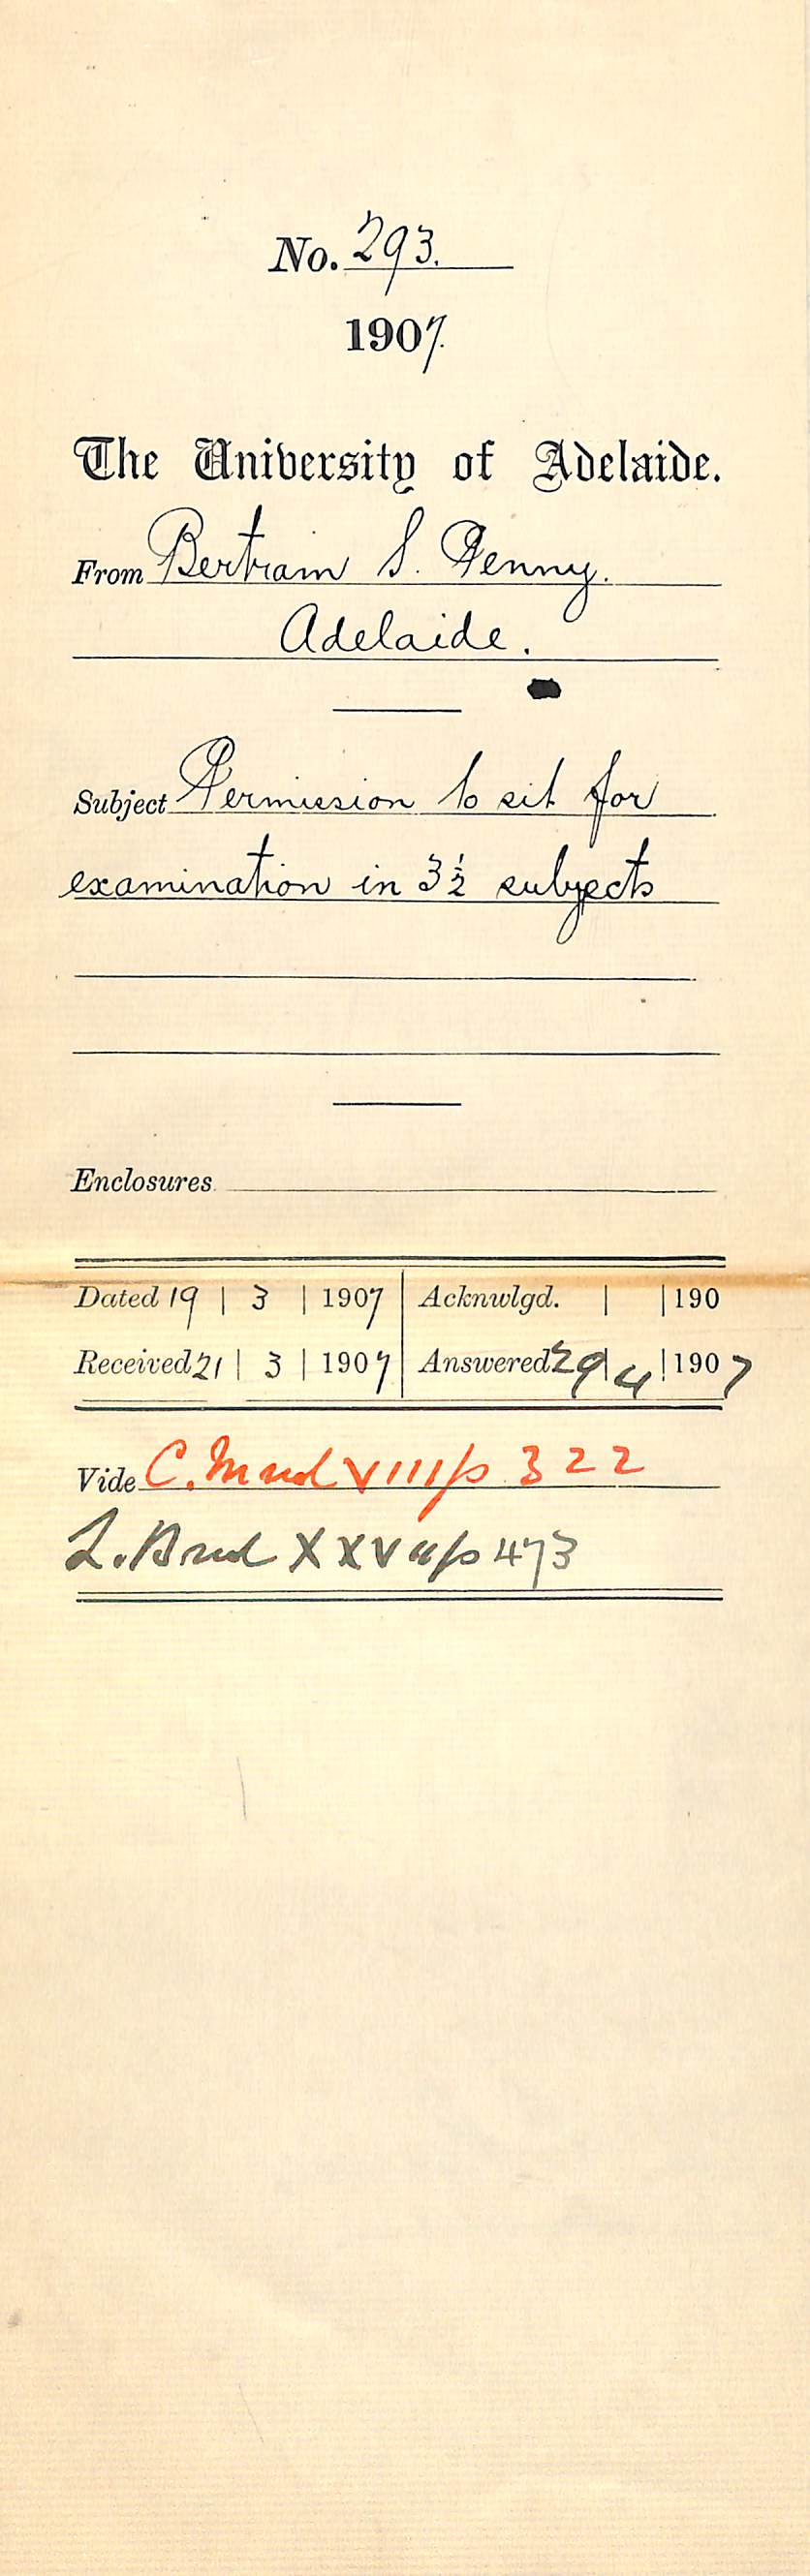 No. 293.
1907.
The University of Adelaide.
From Bertram S. Penny.
Adelaide.
Subject Permission to sit for
examination in 3½ subjects
Enclosures
Dated 19 | 3 | 1907 | Acknwlgd. | | 190
Received 21 | 3 | 1907 | Answered 29 | 4 | 1907
Vide C. M vol VIII/p 322
L. B vol XXVII/p 473